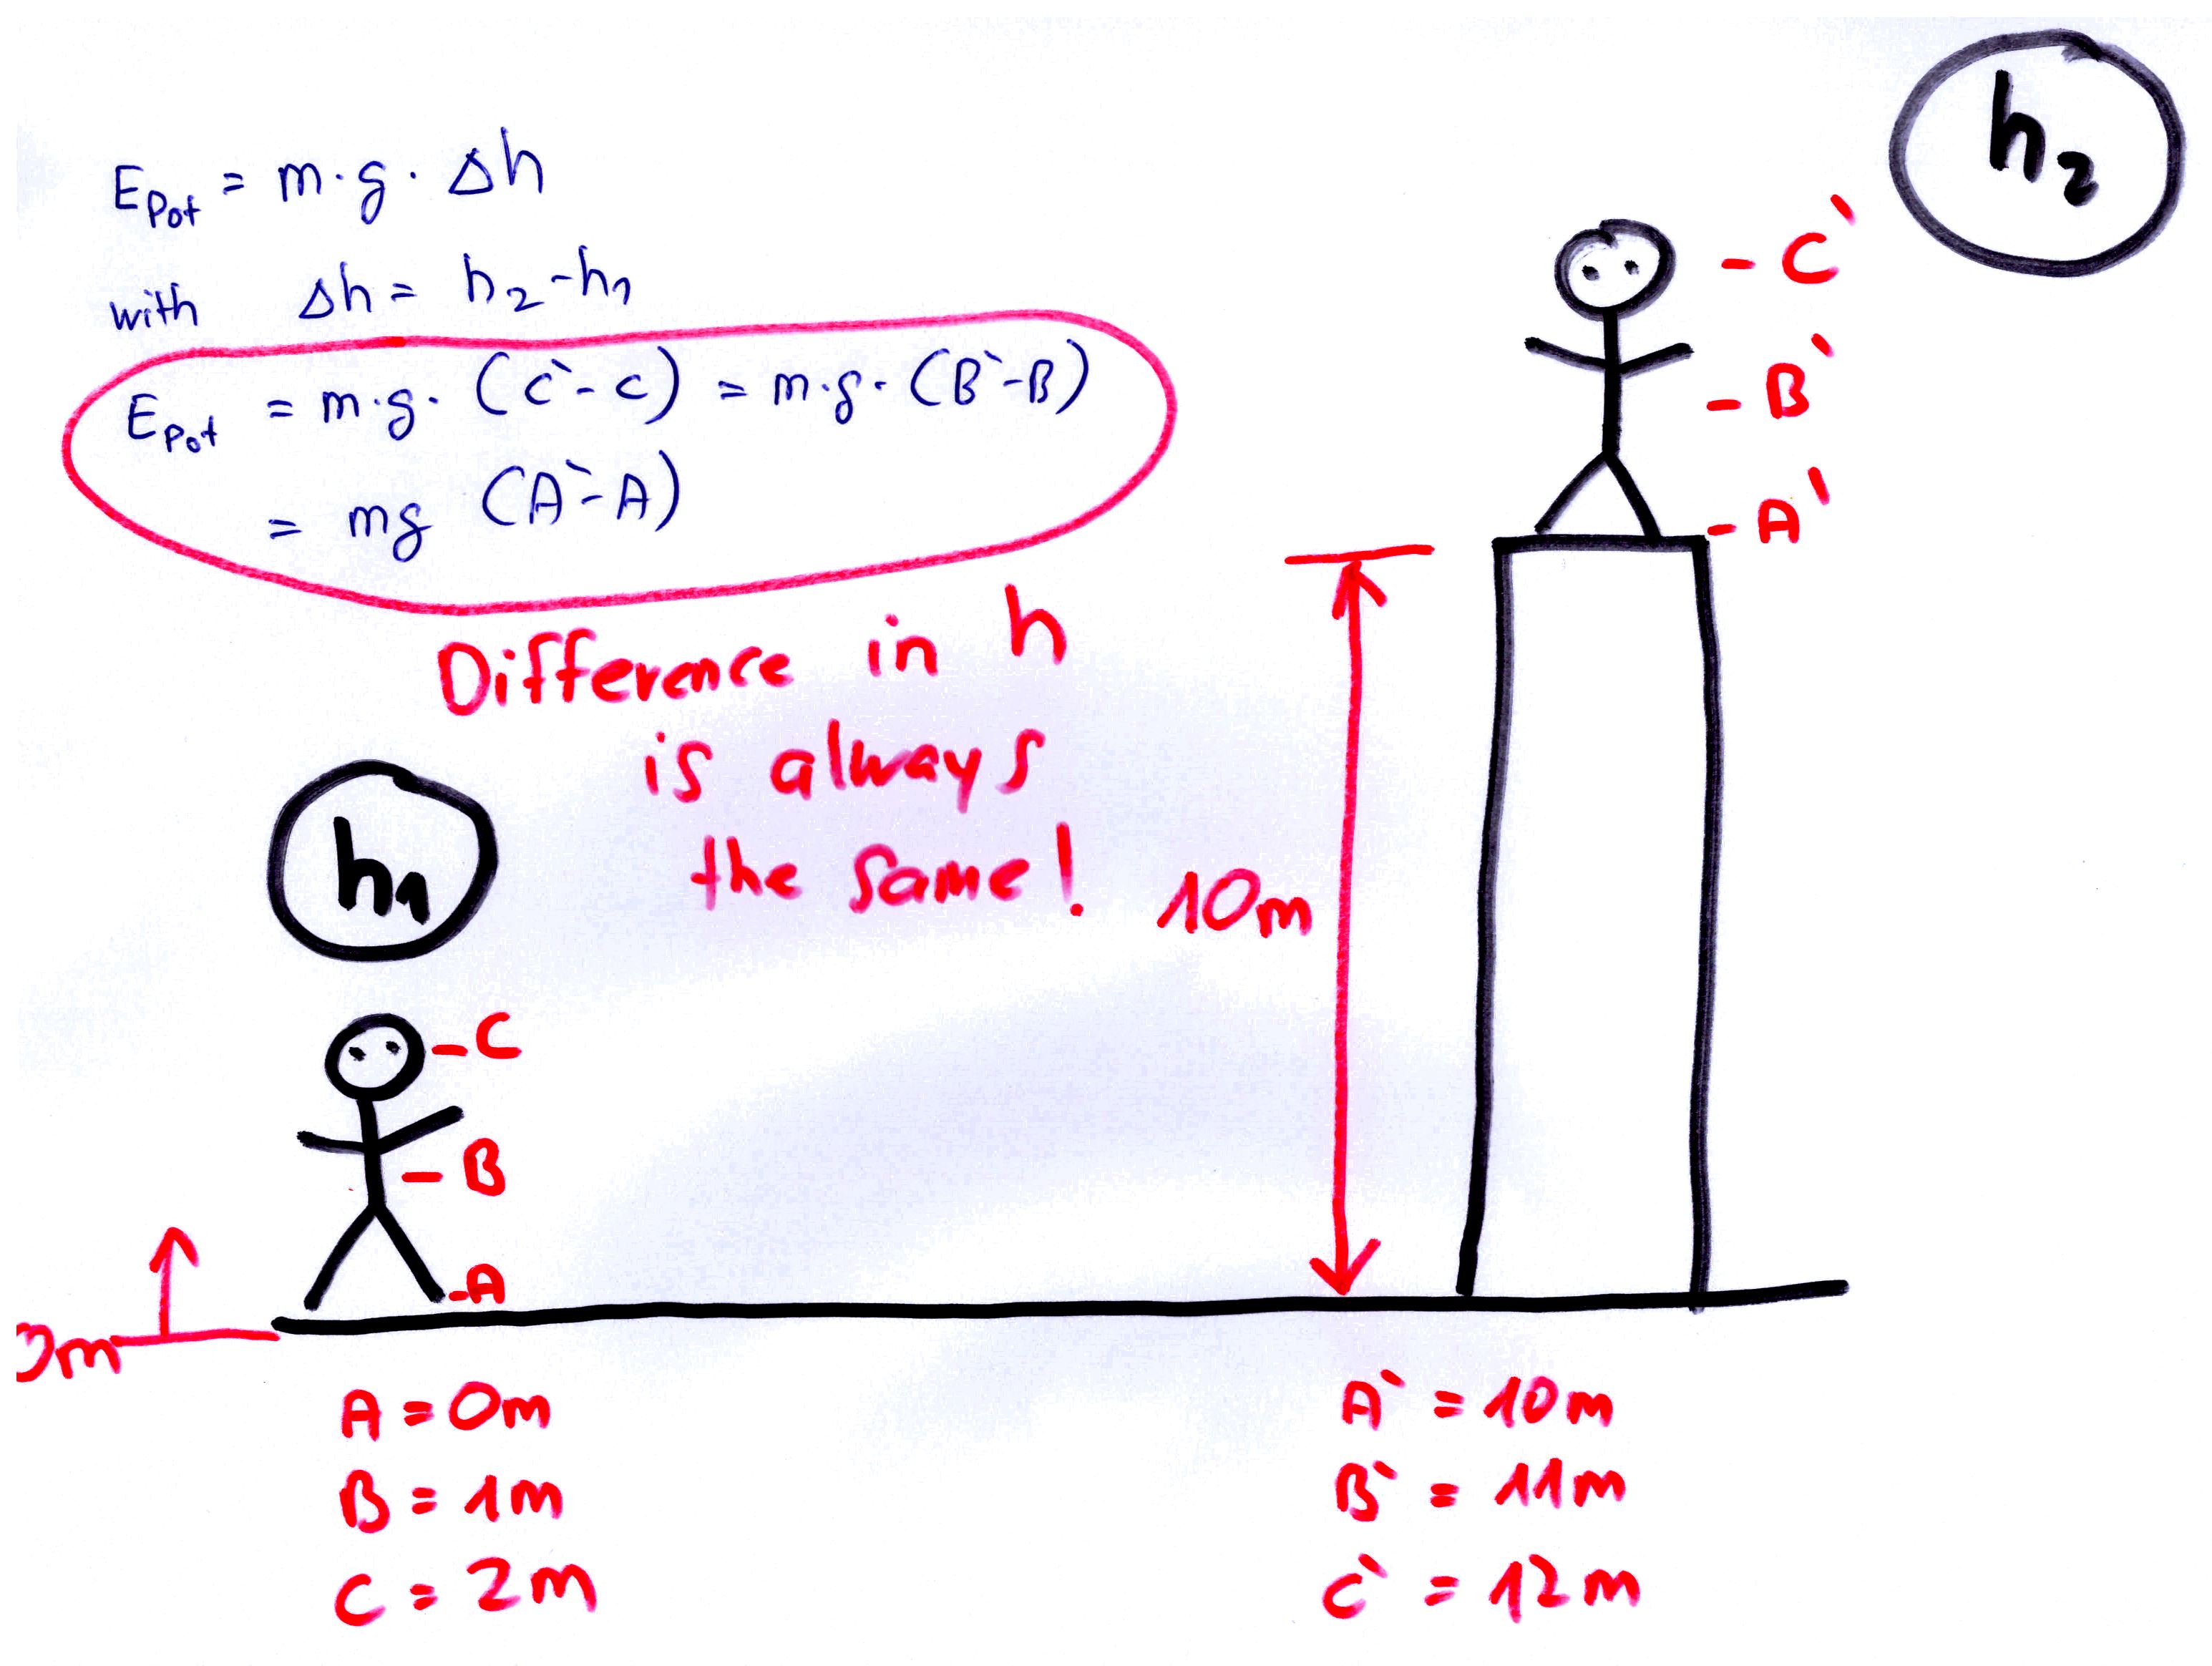 h₂
E_Pot = m·g· Δh
with Δh = h₂-h₁
E_Pot = m·g· (C`-C) = m·g· (B`-B)
= mg (A`-A)
Difference in h
is always
the same!
h₁
-C
-B
-A
0m
10m
-C`
-B`
-A'
A = 0m
B = 1m
C = 2m
A` = 10m
B` = 11m
C` = 12m